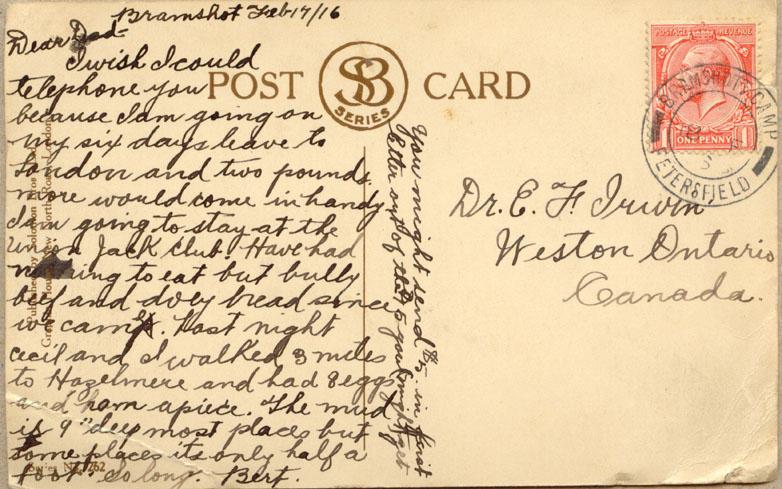 Bramshot Feb 17/16
Dear Dad-
I wish I could
telephone you
because I am going on
my six days leave to
London and two pounds
more would come in handy
I am going to stay at the
Union Jack Club. Have had
nothing to eat but bully
beef and dry bread since
we came. Last night
Cecil and I walked 3 miles
to Hazelmere and had 8 eggs
and ham apiece. The mud
is 9" deep most places but
some places its only half a
foot. So long. Bert.
You might send $5. in first
letter out of the 15 you might get
POST CARD
SB
SERIES
POSTAGE REVENUE
1 ONE PENNY 1
BRAMSHOTT CAMP
PETERSFIELD
Dr. E. F. Irwin
Weston Ontario
Canada.
Published by Solomon Bros
Series No. 262